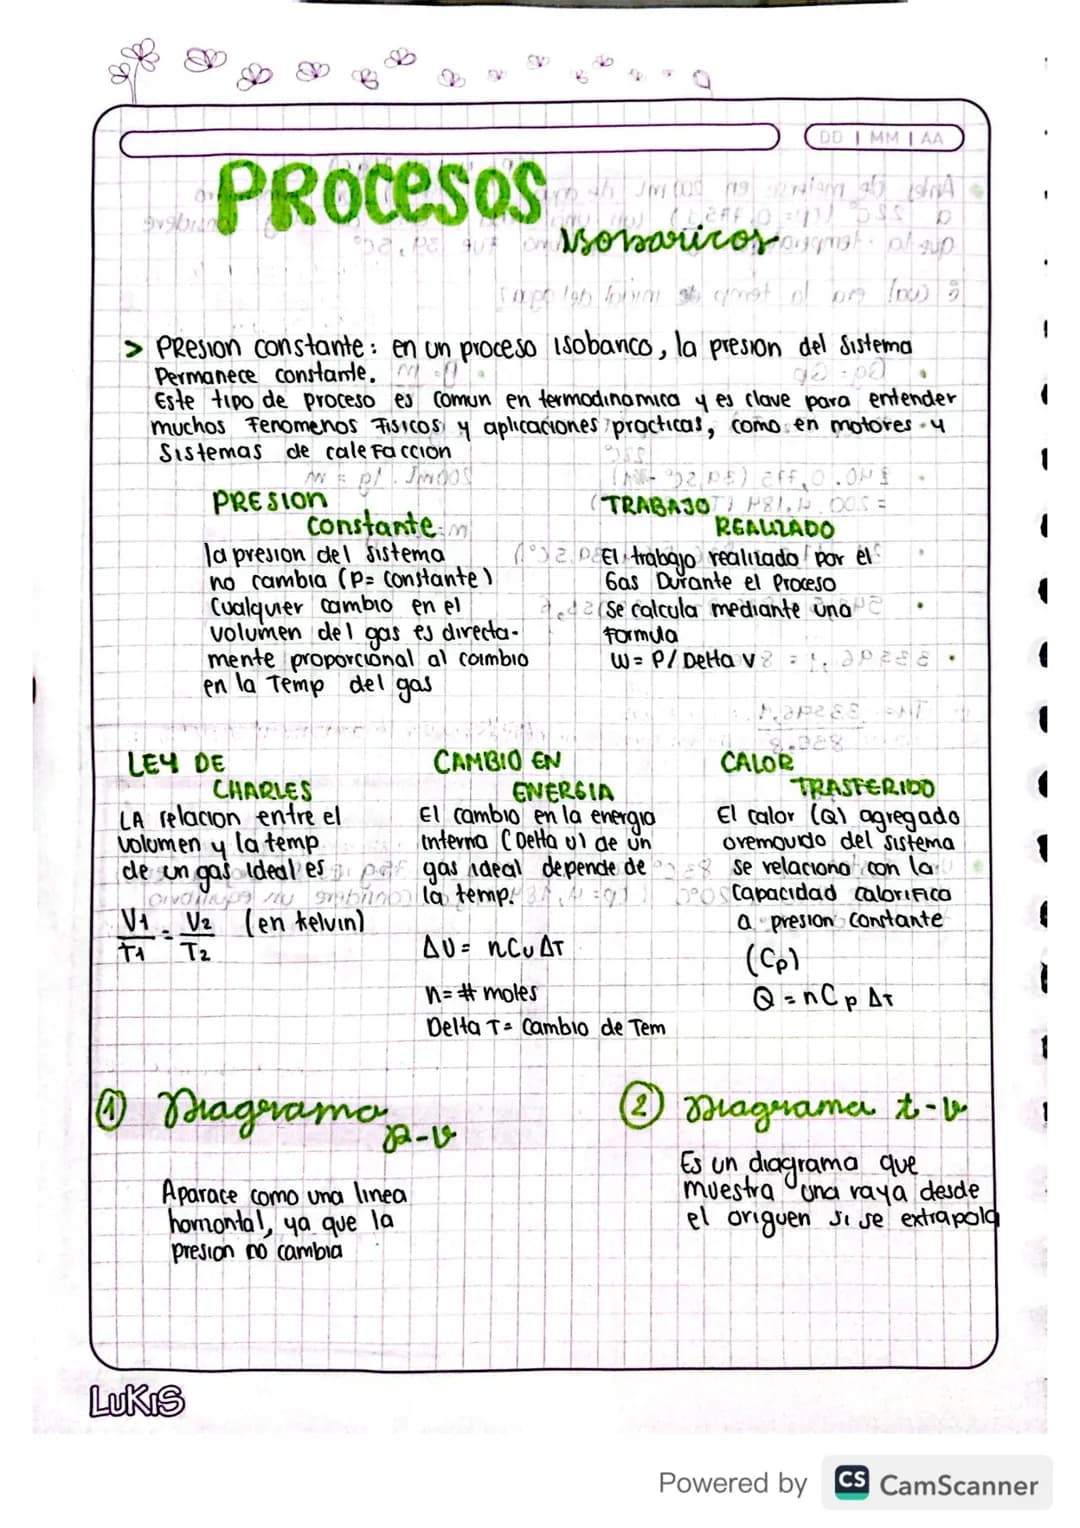 DD | MM | AA
PROCESOS
isobaricos
> PResion constante: en un proceso isobarico, la presion del Sistema
Permanece constante.
Este tipo de proceso es comun en termodinamica y es clave para entender
muchos Fenomenos Fisicos y aplicaciones practicas, como en motores y
Sistemas de caleFaccion
PRESION
constante
la presion del sistema
no cambia (P= constante)
Cualquier cambio en el
volumen del gas es directa-
mente proporcional al cambio
en la Temp del gas
TRABAJO
REALIZADO
El trabajo realizado por el
Gas Durante el Proceso
Se calcula mediante una
Formula
W= P/ Delta v
LEY DE
CHARLES
LA relacion entre el
volumen y la temp
de un gas ideal es
V1/T1 = V2/T2 (en kelvin)
CAMBIO EN
ENERGIA
El cambio en la energia
interna (Delta U) de un
gas ideal depende de
la temp.
ΔU= nCv ΔT
n= # moles
Delta T= Cambio de Tem
CALOR
TRASFERIDO
El calor (Q) agregado
o removido del sistema
se relaciona con la
Capacidad calorifica
a presion constante
(Cp)
Q = nCp ΔT
① Diagrama
p-v
Aparace como una linea
horizontal, ya que la
presion no cambia
② Diagrama t-v
Es un diagrama que
muestra una raya desde
el origuen si se extrapola
LUKIS
Powered by CS CamScanner